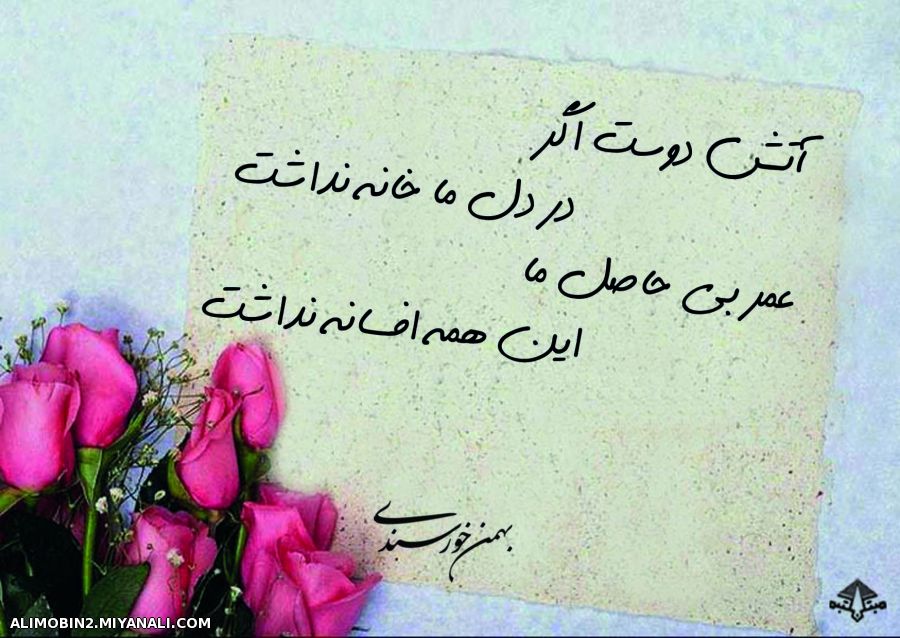 آتش دوست اگر
در دل ما خانه نداشت
عمر بی حاصل ما
این همه افسانه نداشت
بهمن خورسندی
ALIMOBIN2.MIYANALI.COM